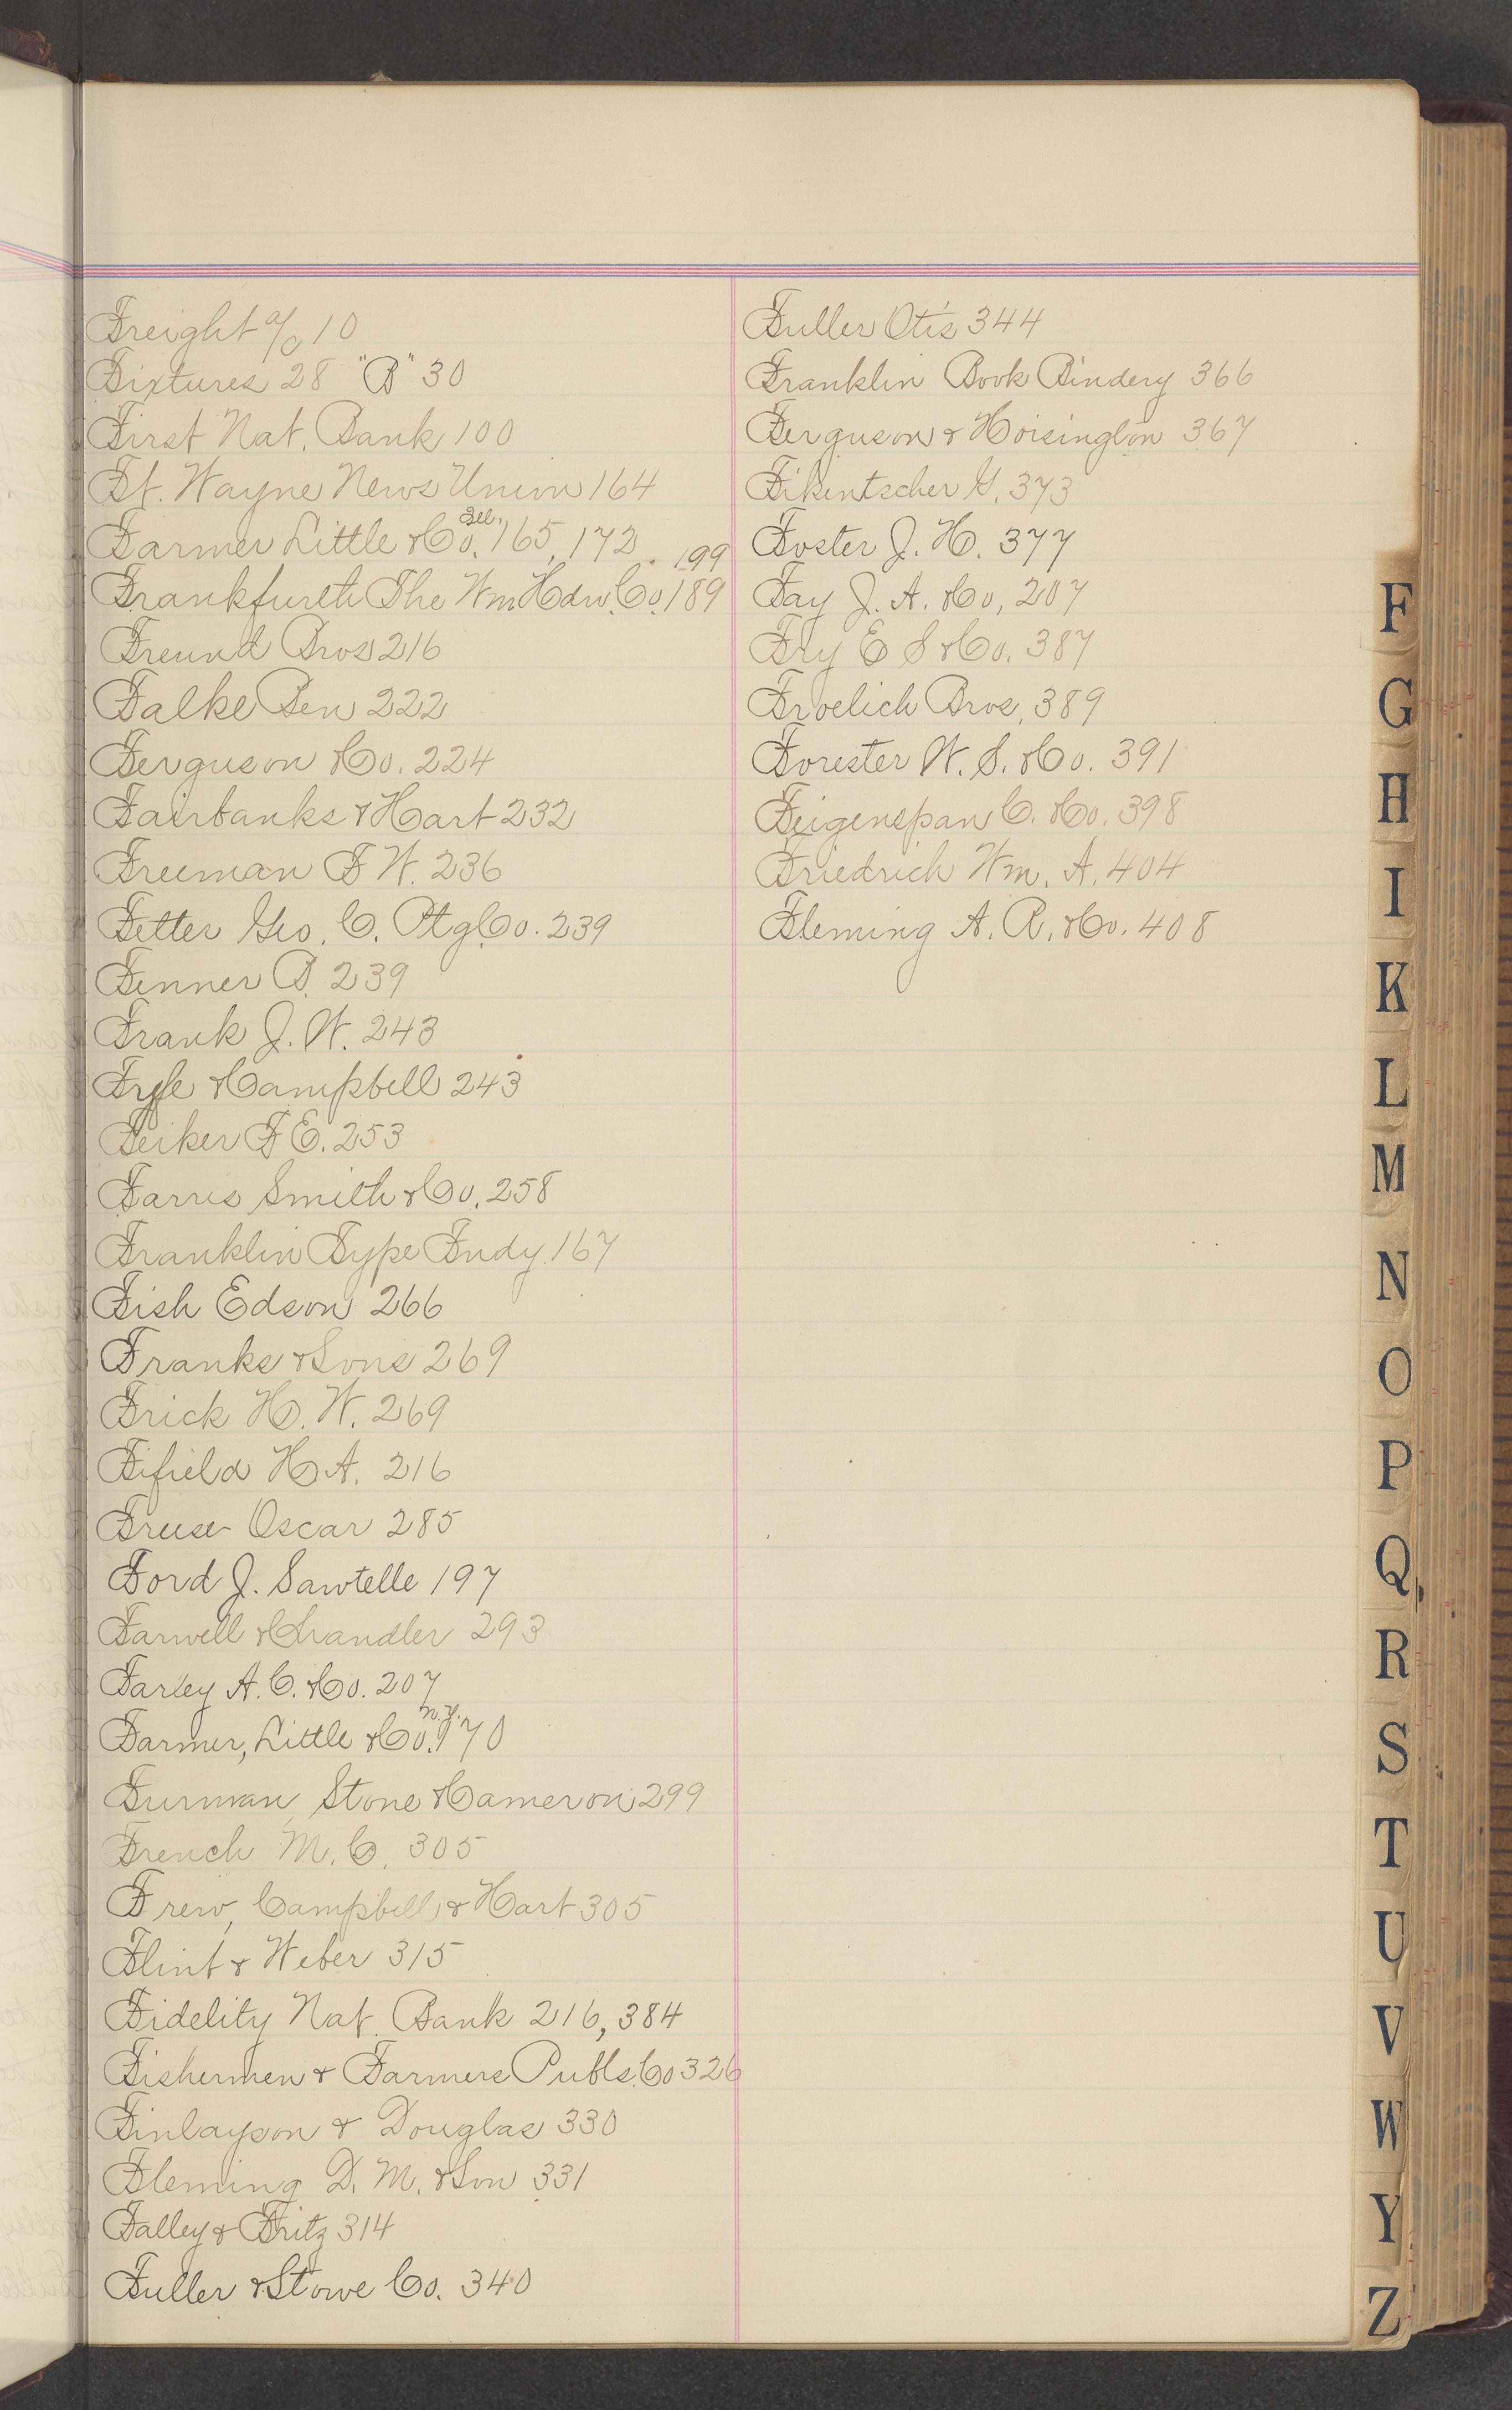 Freight a/c 10
Fixtures 28 "B" 30
First Nat. Bank 100
Ft. Wayne News Union 164
Farmer Little & Co. Ill. 165, 172, 199
Frankfurth The Wm Hdw. Co. 189
Freund Bros 216
Falke Ben 222
Ferguson & Co. 224
Fairbanks & Hart 232
Freeman F W. 236
Fetter Geo. C. Ptg Co. 239
Fenner B. 239
Frank J. W. 243
& Campbell 243
Feiker F E. 253
Farris Smith & Co. 258
Franklin Type Fndy 167
Fish Edson 266
Franks & Sons 269
Frick H. W. 269
Fifield H A. 216
Oscar 285
Ford J. Sawtelle 197
Farwell & Chandler 293
Farley A. C. & Co. 207
Farmer, Little & Co. N.Y. 170
Furman, Stone & Cameron 299
French M. C. 305
Frew, Campbell & Hart 305
Flint & Weber 315
Fidelity Nat. Bank 216, 384
Fishermen & Farmers Publs. Co 326
Finlayson & Douglas 330
Fleming D. M. & Son 331
Falley & Fritz 314
Fuller & Stowe Co. 340
Fuller Otis 344
Franklin Book Bindery 366
Ferguson & Hoisington 367
Fikentscher G. 373
Foster J. H. 377
Fay J. A. & Co. 207
Fry E S & Co. 387
Froelich Bros. 389
Forester W. S. & Co. 391
Feigenspan C. & Co. 398
Friedrich Wm. A. 404
Fleming A. R. & Co. 408
F
G
H
I
K
L
M
N
O
P
Q
R
S
T
U
V
W
Y
Z